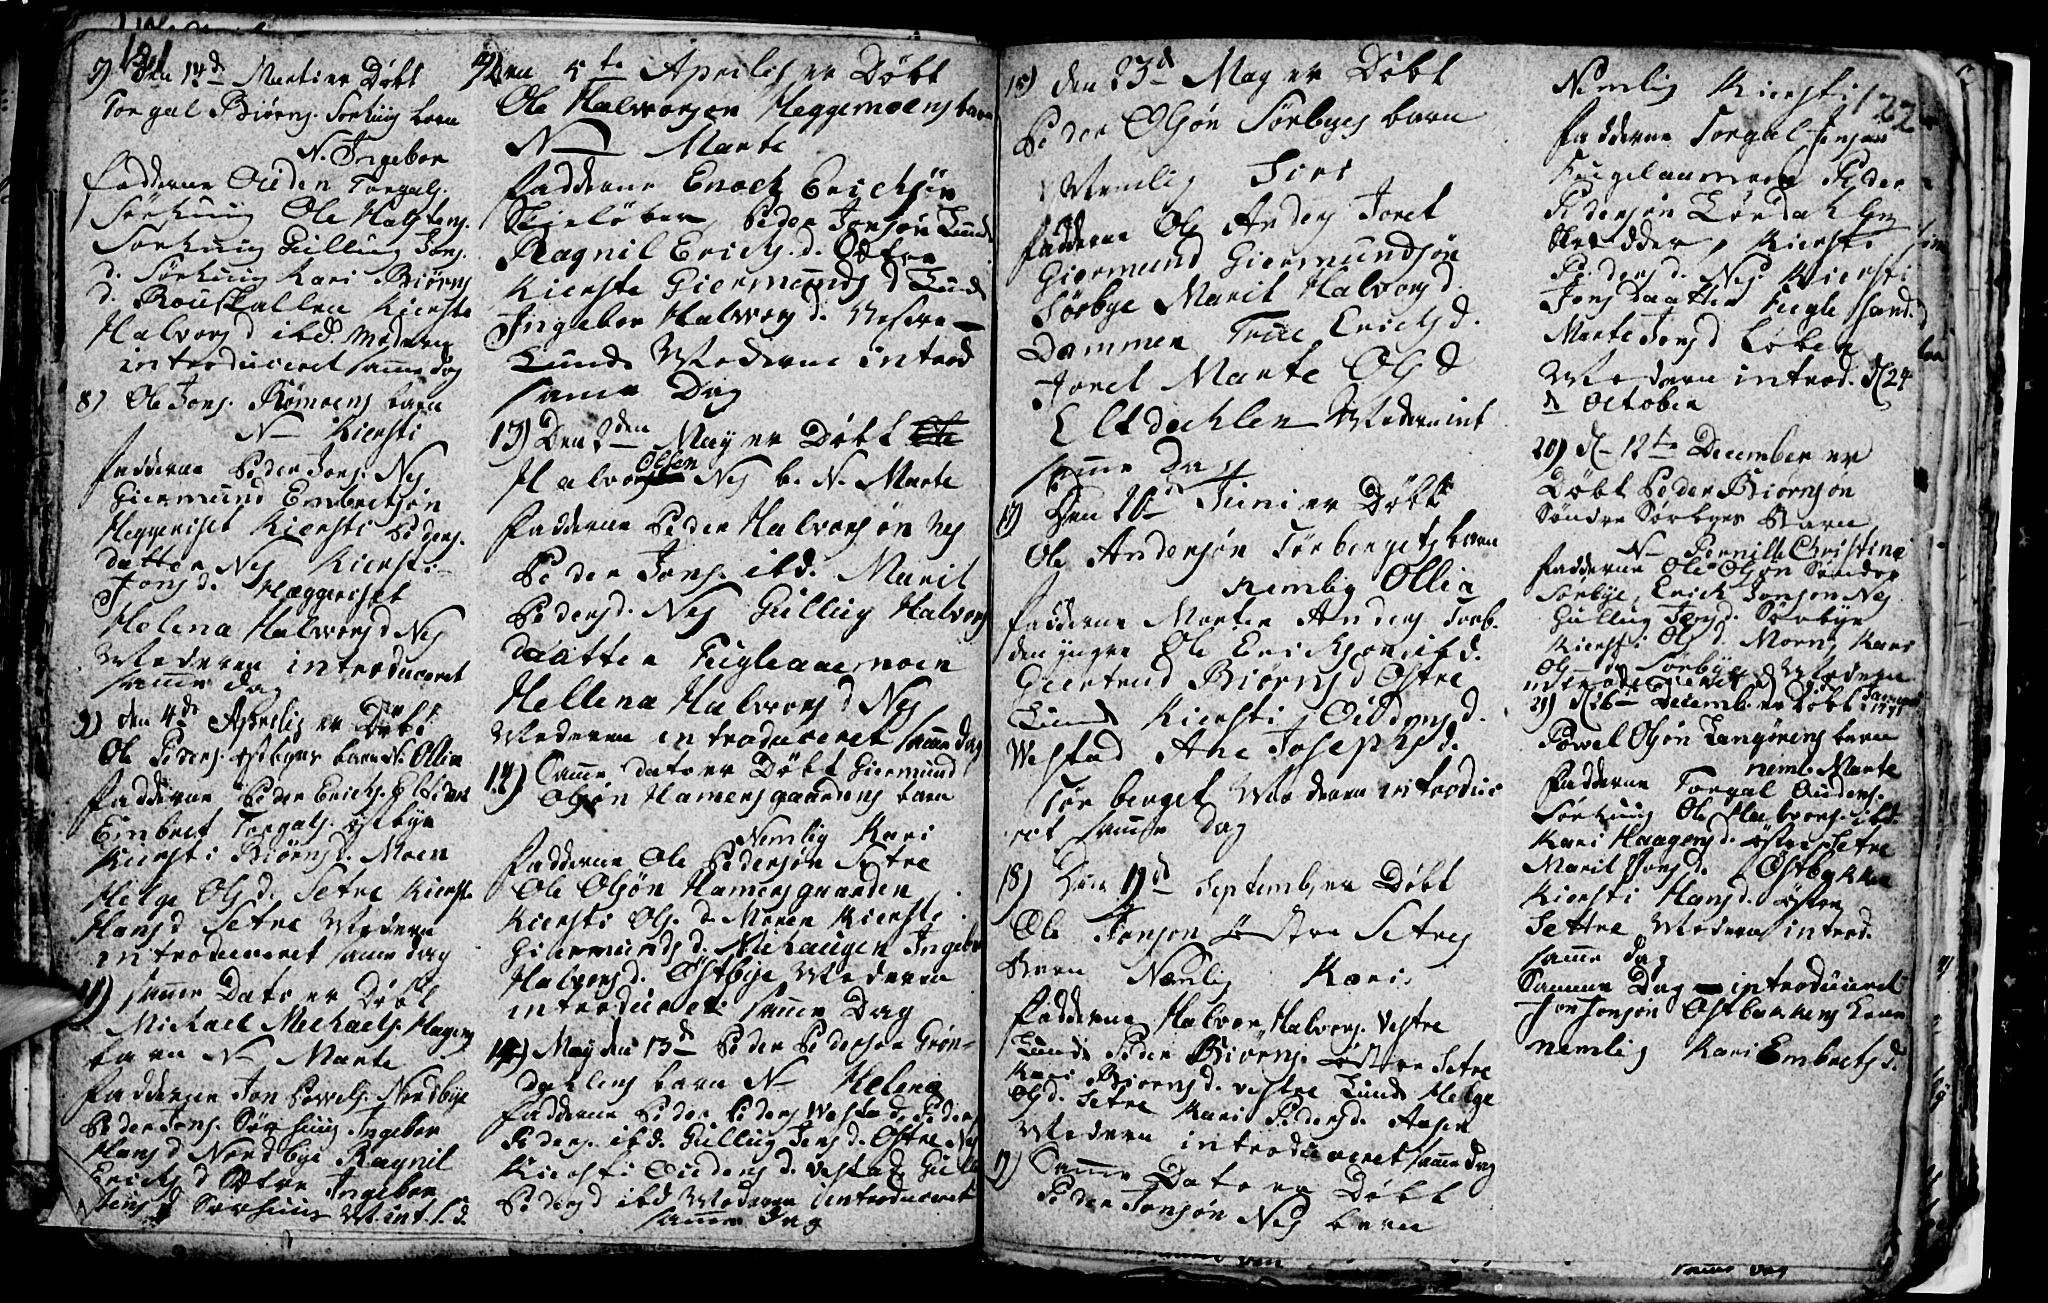 121
7) Den 14d Marti er Døbt
Torgal Biørns. Sorhuus barn
N. Ingebor
fadderne Ouden Torgals.
Sørhuus Ole Halstens.
Sørhuus Gulluug Jons.
d. Sørhuus Kari Biørns
d. Kierste
Halvorsd ibd. Moderen
introduceret samme dag
8) Ole Jons. Rømoens barn
N— Kiersti
fadderne Peder Jons. Nes
Giermund Embretsøn
Heggeriset Kiersti Peders.
datter Nes Kiersti
Jonsd. Hæggeriset
Helena Halvorsd Nes
Moderen introduceret
samme dag
9) den 4de Aprilis er Døbt
Ole Peders. Østbyes barn N. Ollia
fadderne Peder Erichs.
Embret Torgals. Østbye
Kiersti Biørnsd. Moen
Helge Olsd. Setre Kierste
Hansd Setre Moderen
introduceret samme dag
11) samme Dato er Døbt
Michael Michaels. Hagens
barn N— Marte
fadderne Jon Powels. Nordbye
Peder Jons. Sørhuus Ingebor
Hansd Nordbye Ragnil
Erichsd Setre Ingebor
Jensd Sørhuus M. int. s. d.
12) Den 5te Aprilis er Døbt
Ole Halvorsøn Heggemoens barn
N— Marte
fadderne Enoch Erichsøn
Skieløber, Peder Jonsøn Lunde
Ragnil Erichs. d. Østre
Kierste Giermunds d Lunde
Ingebor Halvorsd. Vestre
Lunde Moderen introd
samme Dag
13) Den 2den May er Døbt
Halvor Olsen Nes b. N. Marte
fadderne Peder Halvorsøn Nes
Peder Jons. ibd. Marit
Pedersd. Nes Gulluug Halvors
daatter Fugleaaemoen
Hellena Halvorsd Nes
Moderen introduceret samme dag
14) Samme dato er Døbt Giermund
Olsøn Hamersgaardens barn
Nemlig Kari
fadderne Ole Pedersøn Setre
Ole Olsøn Hamersgaarden
Kiersti Ols. d. Moren Kierste
Giermundsd. Nuhaugen Ingebor
Halvorsd. Østbye Moderen
introduceret samme Dag
14) May den 13d Peder Pedersen Grøn-
dahlens barn N— Helena
fadderne Peder Peders Westad, Peder
Peders. ibd. Gulluug Jensd. Østre Nes
Kiersti Oudensd. Vestad Gulle
Pedersd ibd Moderen introduceret
samme dag
15) den 23d May er Døbt
Peder Olsøn Sørbyes barn
Nemlig Siri
fadderne Ole Anders Joret
Giermund Giermundsøn
Sørbye Marit Halvorsd.
Dammen Erichsd.
Joret Marte Olsd
Eltdahlen Moderen int
samme Dag
17) Den 20d Juni er Døbt
Ole Andersøn Tørbergets barn
nemlig Ollia
fadderne Morten Anders Torb.
den yngre Ole Erichsøn ibd.
Geertrud Biørnsd Østre
Lunde Kiersti Oudensd.
Westad Ane Josephsd.
Tørberget Moderen introduc
ret samme dag
18) Den 19d Septemb. er Døbt
Ole Jonsøn Østre Setres
Barn Nemlig Kari
fadderne Halvor Halvors. Vestre
Lunde Peder Biørns. Østre Setre
Kari Biørnsd. Vestre Lunde Helge
Olsd. Setre Kari Pedersd. Aasen
Moderen introduceret samme dag
19) Samme Dato er Døbt
Peder Jonsøn Nes barn
Nemlig Kiersti
122
fadderne Torgal Jensøn
Fugelaamoen Peder
Pedersøn Lørdahlen
Skredder, Kierste
Pedersd. Nes Kiersti
Jonsdaatter Fuglesand.
Marte Jonsd Løben
Moderen introd. d 24
d October
20) d— 12te December er
Døbt Peder Biørnsøn
Søndre Sørbyes Barn
N— Pernille Christina
fadderne Ole Olsøn Søndre
Sørbye, Erick Jonsøn Nes
Gulluug Jensd. Sørbye
Kiersti Olsd. Moren, Kari
Ols— d Sørbye Moderen
introduceret d Januar 1771
21) d 26— Decemb. er Døbt
Powel Olsøn Langørens barn
neml. Marte
fadderne Torgal Oudens.
Sørhuus Ole Halvors. ibd.
Kari Haagensd. Østre Setre
Marit Jonsd. Østbakken
Kiersti Hansd. Østre
Settre Moderen introd.
samme dag
Samme Dag introduceret
Jon Jonsøn Østbakkens kone
nemlig Kari Embretsd.